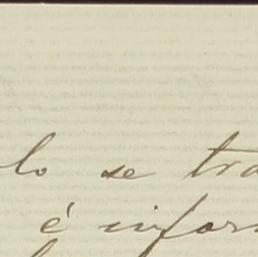 lo se tra
é infor